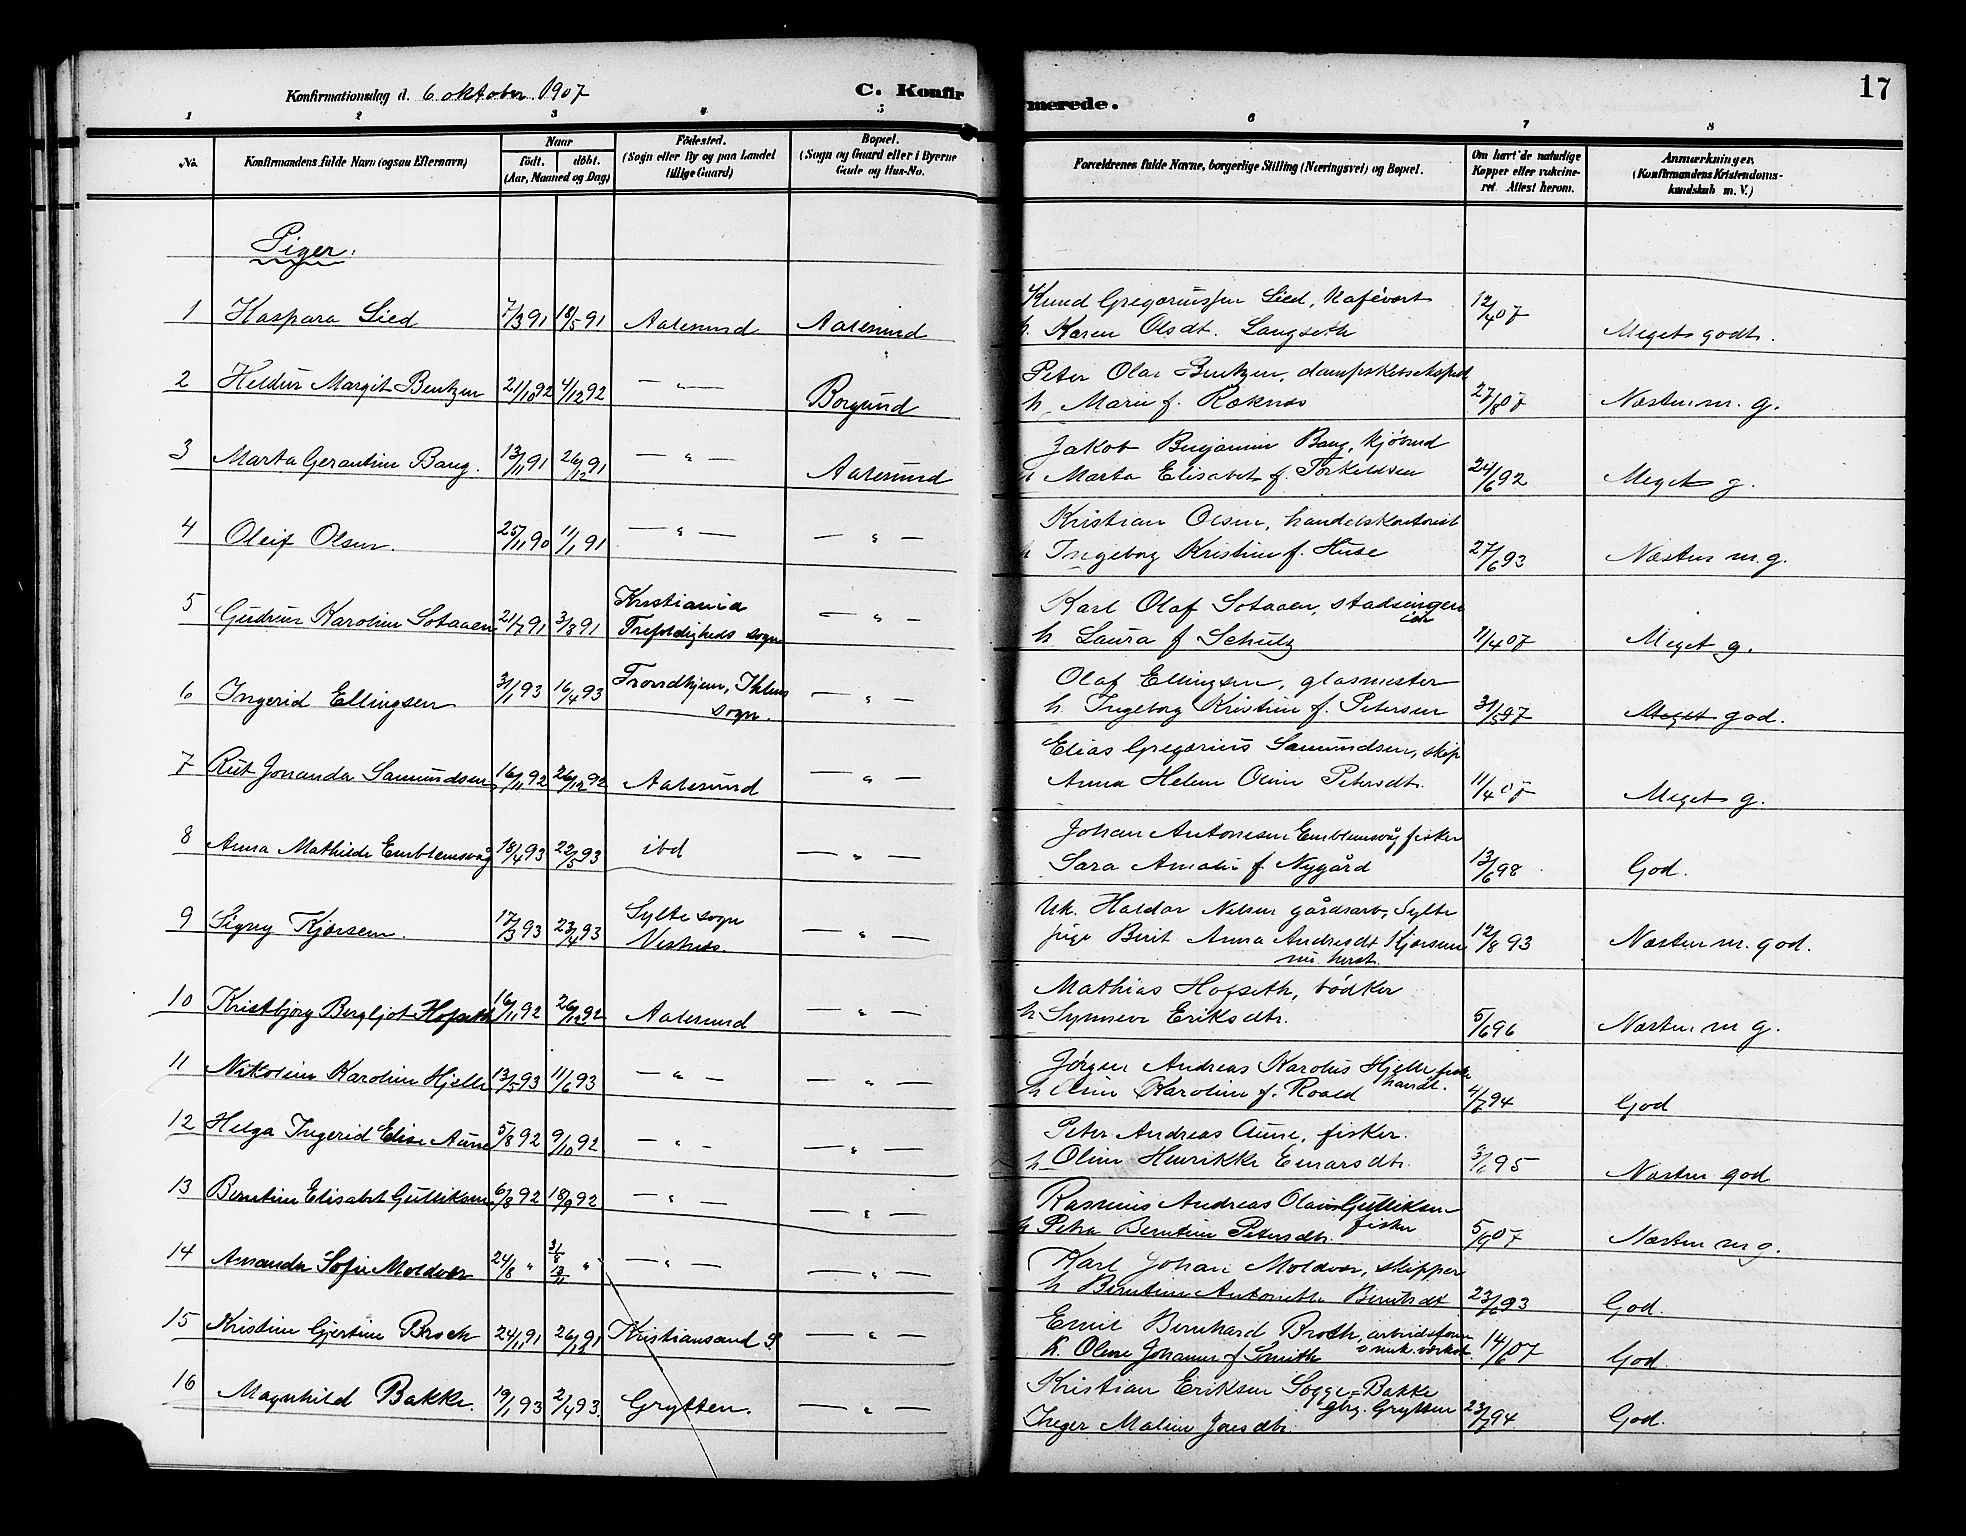 Konfirmationsdag d. 6 oktober 1907
C. Konfirmerede.
17
1 2 3 4 5 6 7 8
No.
Konfirmandens fulde Navn (ogsaa Efternavn)
Naar
født. døbt.
(Aar, Maaned og Dag)
Fødested.
(Sogn eller By og paa Landet
tillige Gaard)
Bopæl.
(Sogn og Gaard eller i Byerne
Gade og Hus-No.
Forældrenes fulde Navne, borgerlige Stilling (Næringsvei) og Bopæl.
Om havt de naturlige
Kopper eller vakcine-
ret Attest herom.
Anmærkninger.
(Konfirmandens Kristendoms-
kundskab m. V.)
Piger.
1 Kaspara Lied 7/3 91 18/5 91 Aalesund Aalesund
Knud Gregoriussen Lied, Kafévert
h. Karen Olsdt. Langseth 12/4 07 Meget godt.
2 Hildur Margit Bentzen 21/10 92 4/12 92 — " — Borgund
Peter Olai Bentzen, dampskibseksped
h. Marie f. Røknes 27/8 07 Næsten m. g.
3 Marta Gerantine Bang. 13/11 91 26/12 91 — " — Aalesund
Jakob Benjamin Bang, kjøbmd
h Marta Elisabet f. Torkildsen 24/6 92 Meget g.
4 Oleif Olsen. 25/11 90 11/1 91 — " — — " —
Kristian Olsen, handelskontorist
h Ingeborg Kristine f. Huse 27/6 93 Næsten m. g.
5 Gudrun Karoline Sotaaen 21/7 91 3/8 91 Kristiania — " —
Trefoldigheds sogn
Karl Olaf Sotaaen, stadsingen
iør
h. Laura f Schulz 11/4 07 Meget g.
6 Ingerid Ellingsen 31/1 93 16/4 93 Trondhjem, Ihlens — " —
sogn.
Olaf Ellingsen, glasmester
h. Ingeborg Kristine f. Petersen 31/5 97 Meget god.
7 Rut Jonanda Samundsen 16/11 92 26/12 92 Aalesund — " —
Elias Gregorius Samundsen, skip
Anna Helene Oline Petersdt. 11/4 07 Meget g.
8 Anna Mathilde Emblemsvåg 18/4 93 22/5 93 ibd — " —
Johan Antonesen Emblemsvåg fisker
Sara Amalie f. Nygård 13/6 98 God.
9 Signy Kjørsem. 17/3 93 23/4 93 Sylte sogn — " —
Vestnes.
Uk. Haldor Nilsen gårdsarb, Sylte
pige Berit Anna Andresdt Kjørsem
nu herst. 12/8 93 Næsten m. god.
10 Kristbjørg Bergljot Hofseth 16/11 92 26/12 92 Aalesund — " —
Mathias Hofseth, bødker
h. Synneve Eriksdtr. 5/6 96 Næsten m g.
11 Nikoline Karoline Hjelle 13/5 93 11/6 93 — " — — " —
Jørgen Andreas Karolus Hjelle fiske
handl.
h Oline Karoline f. Roald 4/7 94 God
12 Helga Ingerid Elise Aune 5/8 92 9/10 92 — " — — " —
Peter Andreas Aune, fisker.
h. Oline Henrikke Einarsdtr. 3/6 95 Næsten god
13 Berntine Elisabet Gulliksen 6/8 92 18/9 92 — " — — " —
Rasmus Andreas Olaus Gulliksen
fisker
h Petra Berntine Petersdtr. 5/9 07 Næsten m g.
14 Amanda Sofie Moldvær 24/8 " 31/8 13/11 " — " — — " —
Karl Johan Moldvær, skipper
h Berntine Antonette Berntsdt 23/6 93 God.
15 Kristine Gjertine Broch 24/11 91 26/12 91 Kristiansand S. — " —
Emil Bernhard Broch, arbeidsform
h. Oline Johanne f Smith 14/6 07 God.
16 Magnhild Bakke. 19/1 93 2/4 93. Grytten. — " —
Kristian Eriksen Sogge-Bakke
gbrg. Grytten
Inger Maline Jonsdtr. 23/7 94 God.